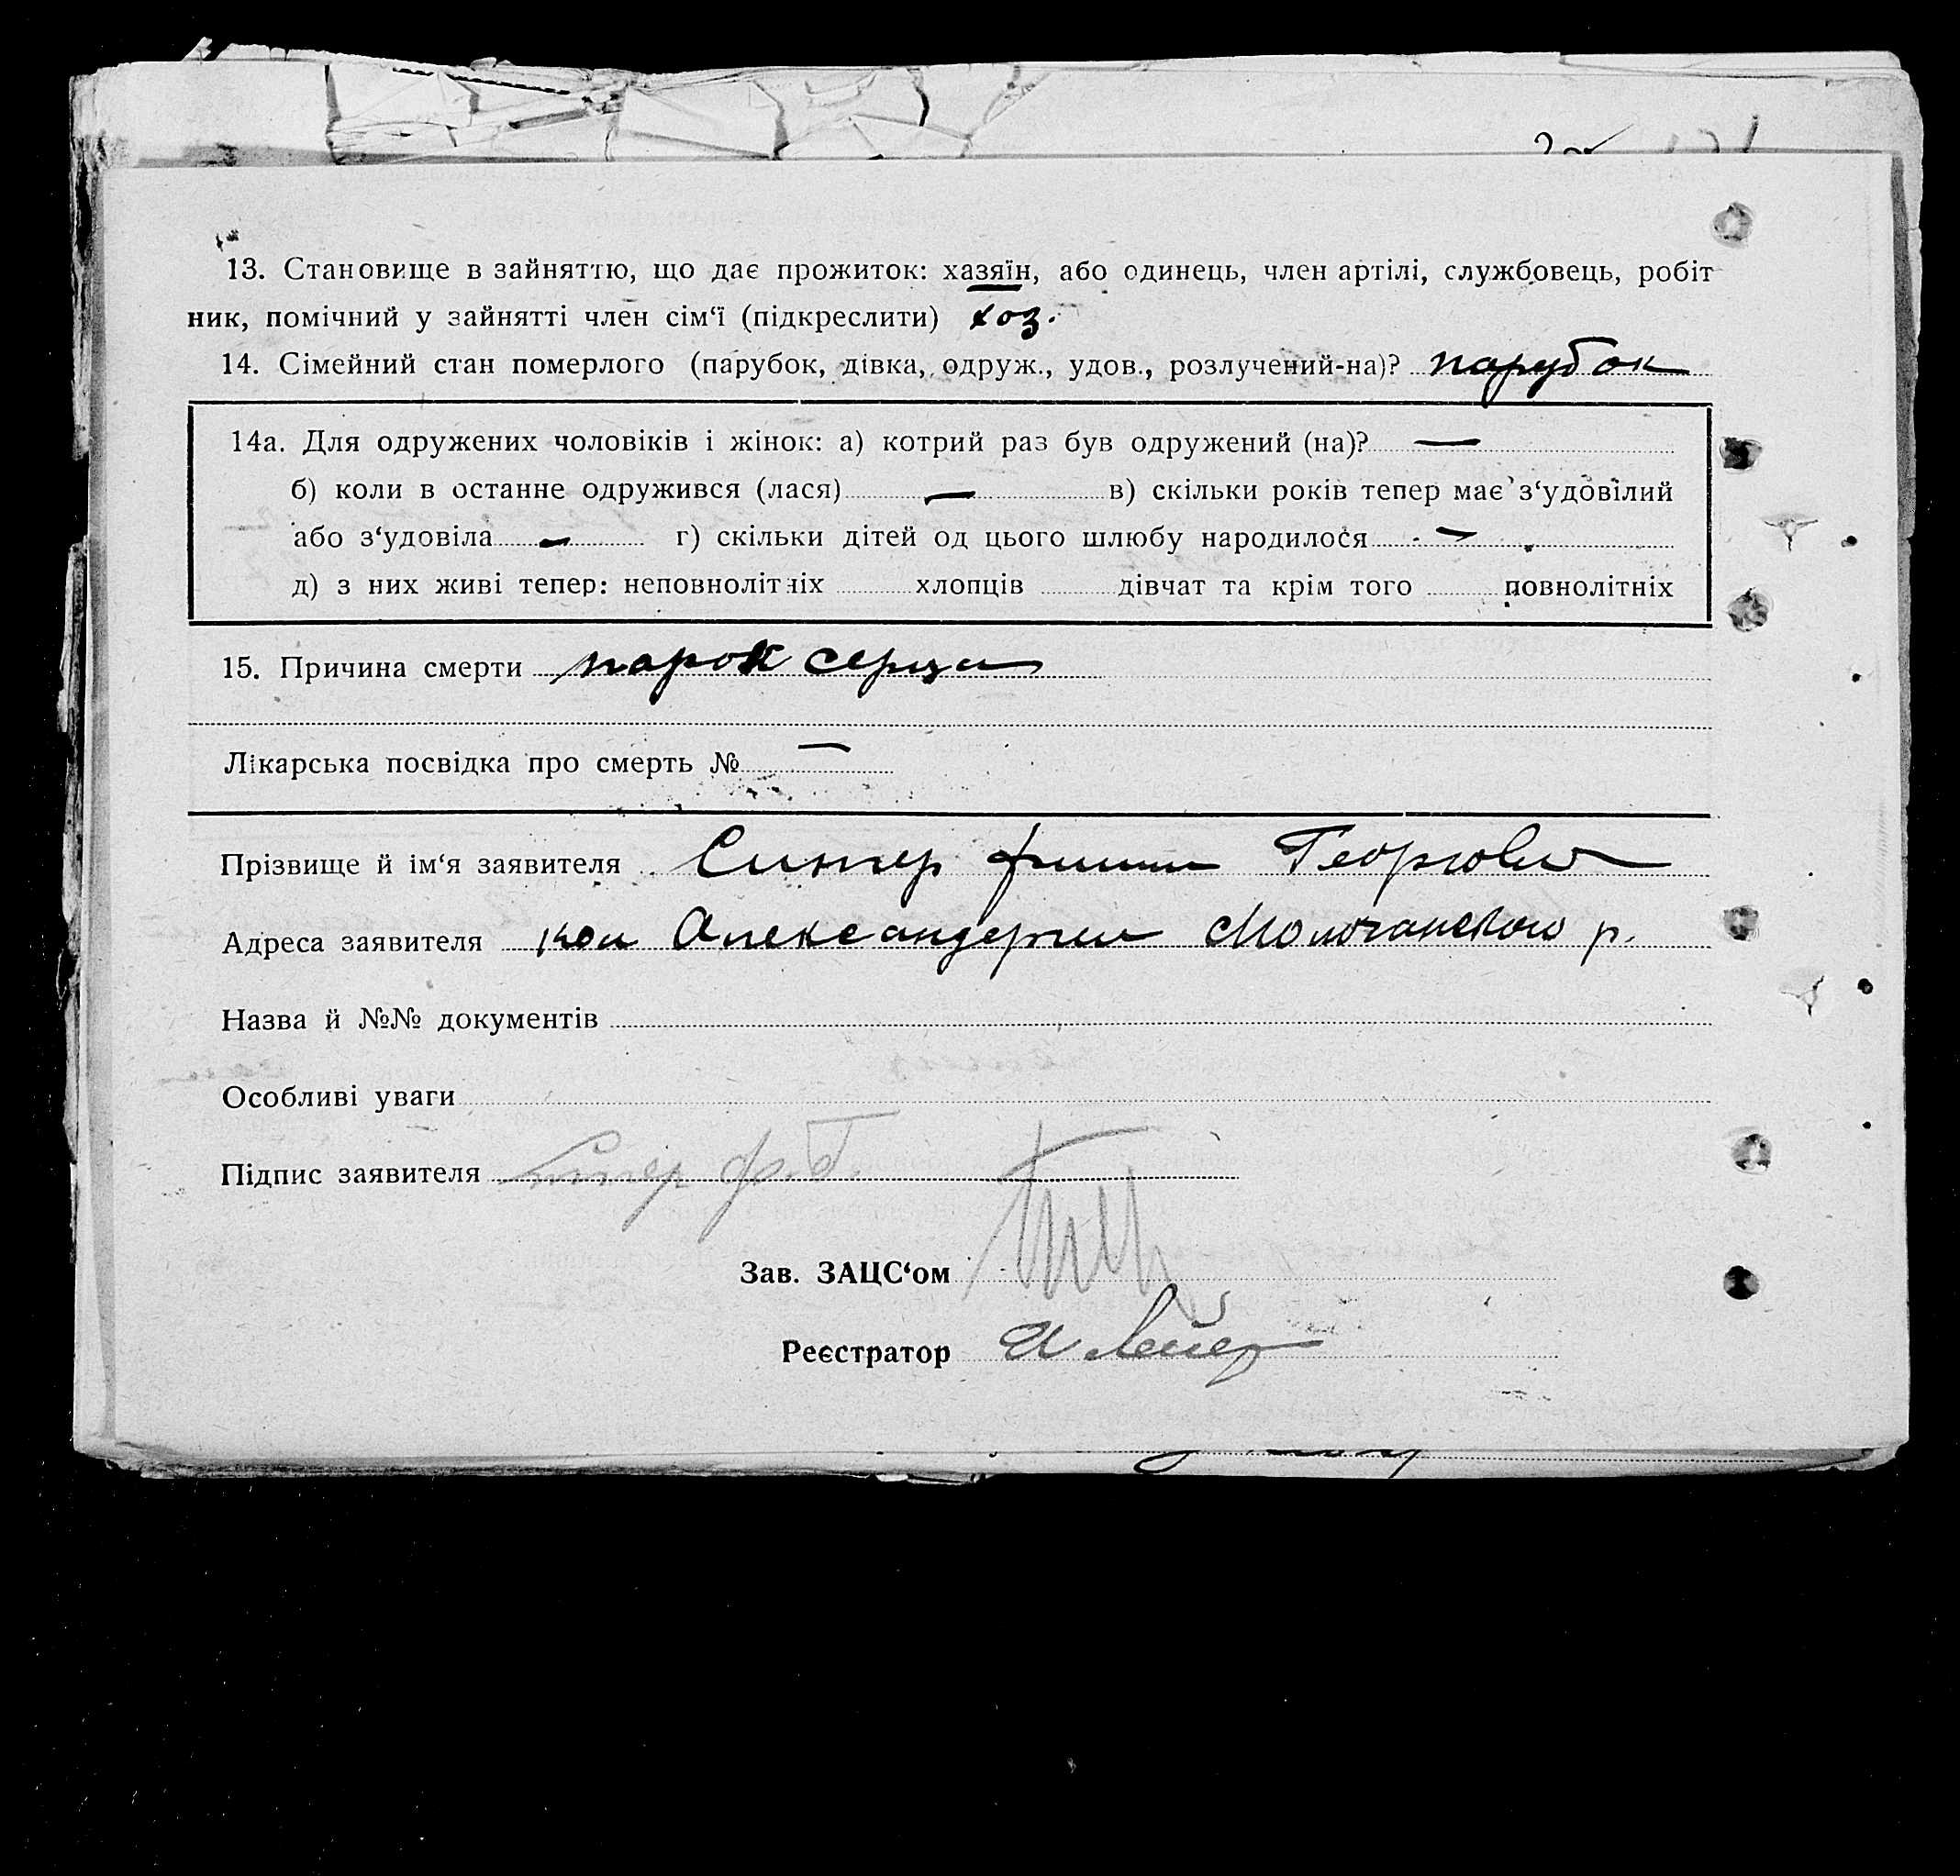 13. Становище в зайняттю, що дає прожиток: хазяїн, або одинець, член артілі, службовець, робіт
ник, помічний у зайнятті член сім‘ї (підкреслити) хоз.
14. Сімейний стан померлого (парубок, дівка, одруж., удов., розлучений-на)? парубок
14а. Для одружених чоловіків і жінок: а) котрий раз був одружений (на)? —
б) коли в останне одружився (лася) — в) скільки років тепер має з‘удовілий
або з‘удовіла — г) скільки дітей од цього шлюбу народилося —
д) з них живі тепер: неповнолітніх хлопців дівчат та крім того повнолітніх
15. Причина смерти порок серца
Лікарська посвідка про смерть № —
Прізвище й ім‘я заявителя Георгиевич
Адреса заявителя кол Александергейм Молочанского р.
Назва й №№ документів
Особливі уваги
Підпис заявителя Ф. Г.
Зав. ЗАЦС‘ом
Реєстратор